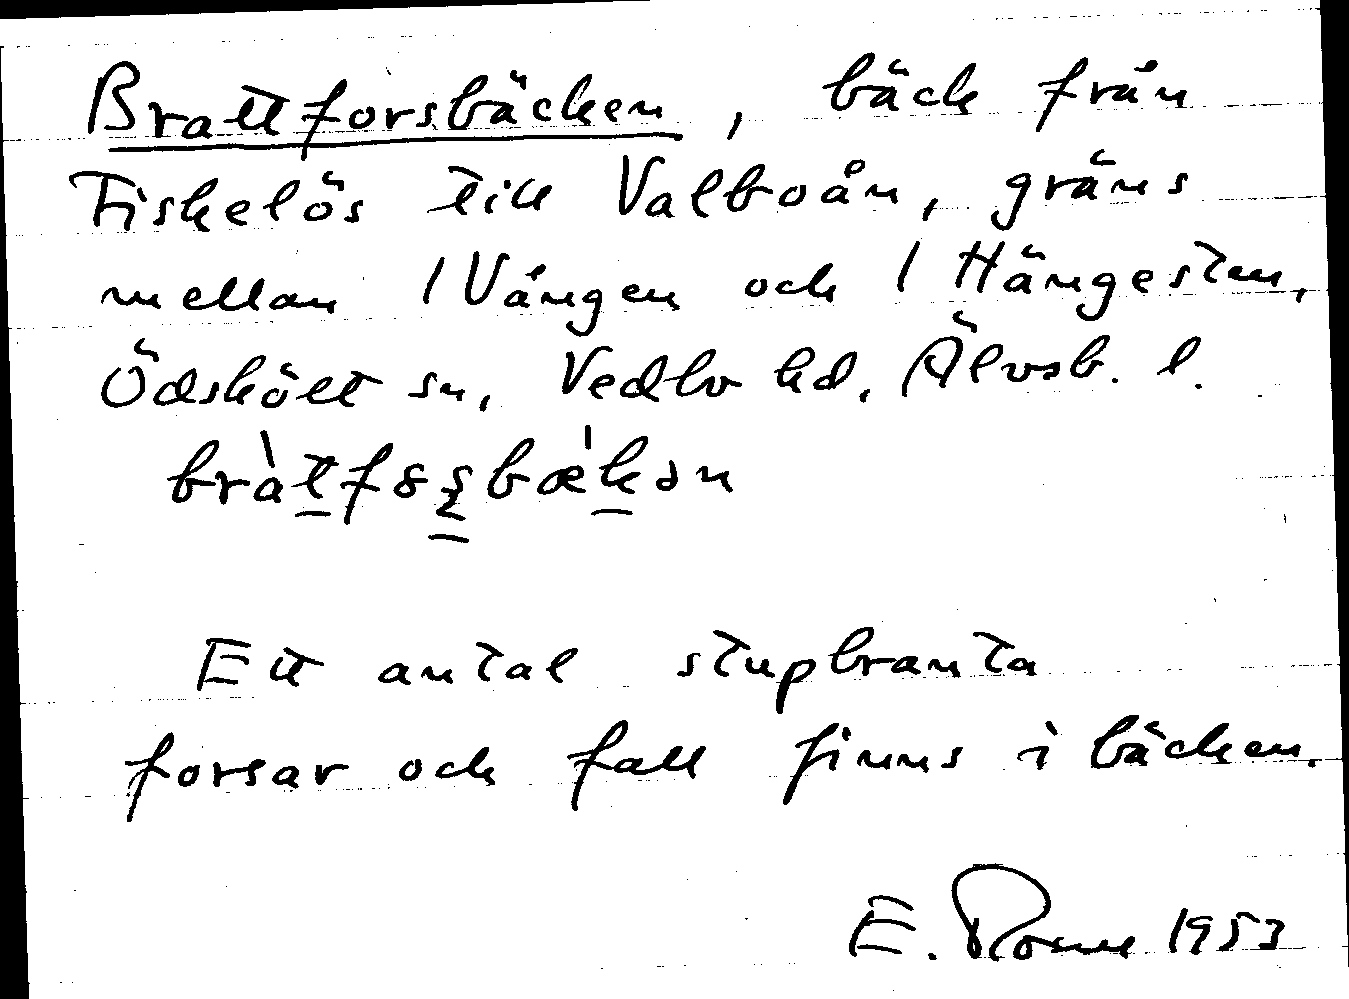 Brattforsbäcken, bäck från
Fiskelös till Valboån, gräns
mellan 1 Vången och 1 Hängesten,
Ödskölt sn, Vedbo hd, Älvsb. l.
bràtfȣʂbæ̀kən
Ett antal stupbranta
forsar och fall finns i bäcken.
E. 1953